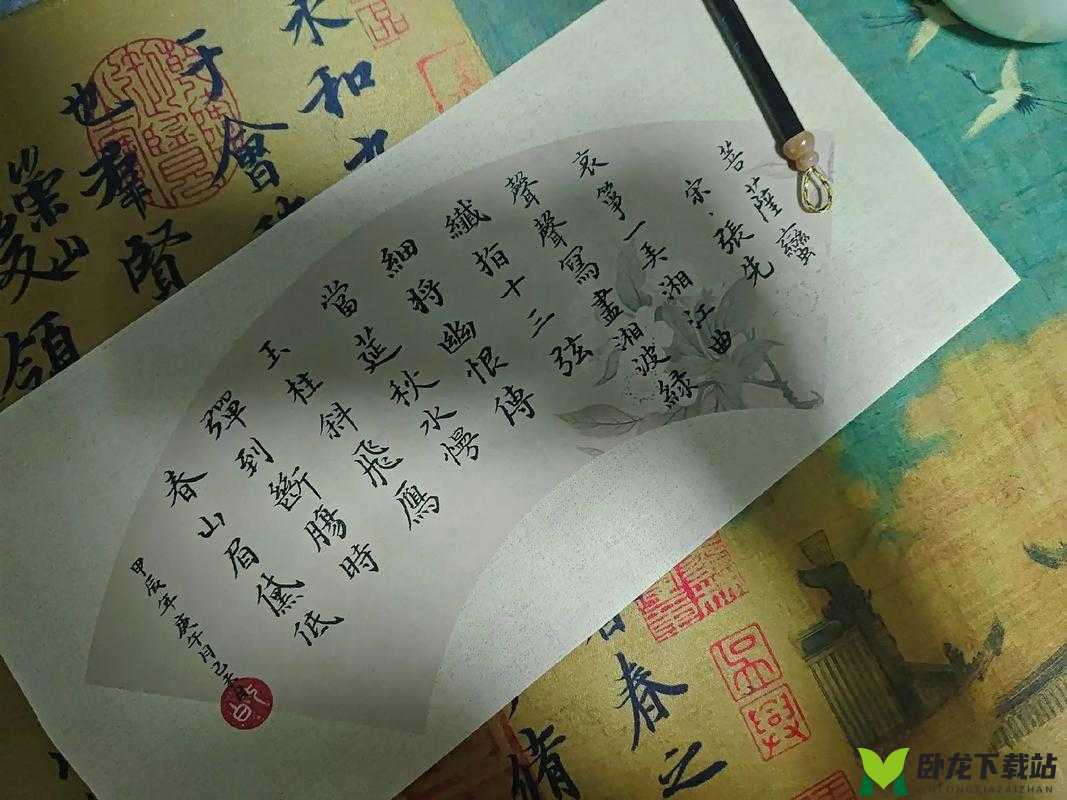 菩薩蠻
宋、張先
哀箏一弄湘江曲
聲聲寫盡湘波綠
纖指十三弦
細將幽恨傳
當筵秋水慢
玉柱斜飛鴈
彈到斷腸時
春山眉黛低
甲辰年庚午月己
永和九
于會
也群賢
崇山
領
春之
脩
卧龙下载站
WOLONGXIAZAIZHAN